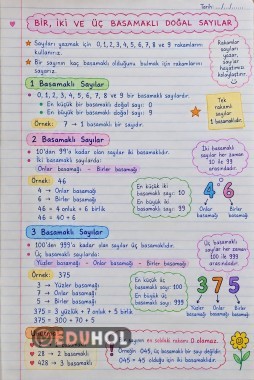 Tarih: .../.../....
BİR, İKİ VE ÜÇ BASAMAKLI DOĞAL SAYILAR
Sayıları yazmak için 0, 1, 2, 3, 4, 5, 6, 7, 8 ve 9 rakamlarını
kullanırız.
Bir sayının kaç basamaklı olduğunu bulmak için rakamlarını
sayarız.
Rakamlar
sayıları
yazar,
sayılar
hayatımızı
kolaylaştırır.
1 Basamaklı Sayılar
0, 1, 2, 3, 4, 5, 6, 7, 8 ve 9 bir basamaklı sayılardır.
En küçük bir basamaklı doğal sayı: 0
En büyük bir basamaklı doğal sayı: 9
Örnek: 7 → 1 basamaklı bir sayıdır.
Tek
rakamlı
sayılar
1 basamaklıdır.
2 Basamaklı Sayılar
10'dan 99'a kadar olan sayılar iki basamaklıdır.
İki basamaklı sayılarda:
Onlar basamağı - Birler basamağı
İki basamaklı
sayılar her zaman
10 ile 99
arasındadır.
Örnek: 46
4 → Onlar basamağı
6 → Birler basamağı
46 = 4 onluk + 6 birlik
46 = 40 + 6
En küçük iki
basamaklı sayı: 10
En büyük iki
basamaklı sayı: 99
4 6
Onlar Birler
basamağı basamağı
3 Basamaklı Sayılar
100'den 999'a kadar olan sayılar üç basamaklıdır.
Üç basamaklı sayılarda:
Yüzler basamağı - Onlar basamağı - Birler basamağı
Üç basamaklı
sayılar her zaman
100 ile 999
arasındadır.
Örnek: 375
3 → Yüzler basamağı
7 → Onlar basamağı
5 → Birler basamağı
375 = 3 yüzlük + 7 onluk + 5 birlik
375 = 300 + 70 + 5
En küçük üç
basamaklı sayı: 100
En büyük üç
basamaklı sayı: 999
3 7 5
Yüzler Onlar Birler
basamağı basamağı basamağı
EDUHOL
28 → 2 basamaklı
428 → 3 basamaklı
en soldaki rakam 0 olamaz.
Örneğin 045, üç basamaklı bir sayı değildir.
045 = 45 olduğu için iki basamaklıdır.